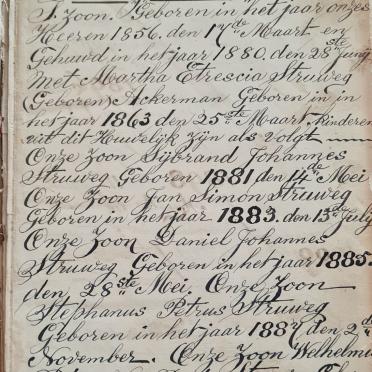 J. Zoon. Geboren in het jaar onzes
Heeren 1856. den 17de Maart en
Gehuwd in het jaar 1880. den 28ste Junij
Met Martha Etrescia Struweg
(Geboren) Ackerman Geboren in in
het jaar 1863 den 25ste Maart. Kinderen
uit dit Heuwelijk Zijn als Volgt
Onze Zoon Sijbrand Johannes
Struweg Geboren 1881 den 14de Mei
Onze Zoon Jan Simon Struweg
Geboren in het jaar 1883. den 13de July
Onze Zoon Daniel Johannes
Struweg Geboren in het jaar 1885.
den 28ste Mei. Onze Zoon
Stephanus Petrus Struweg
Geboren in het jaar 1887 den 2de
November. Onze Zoon Welhelmus